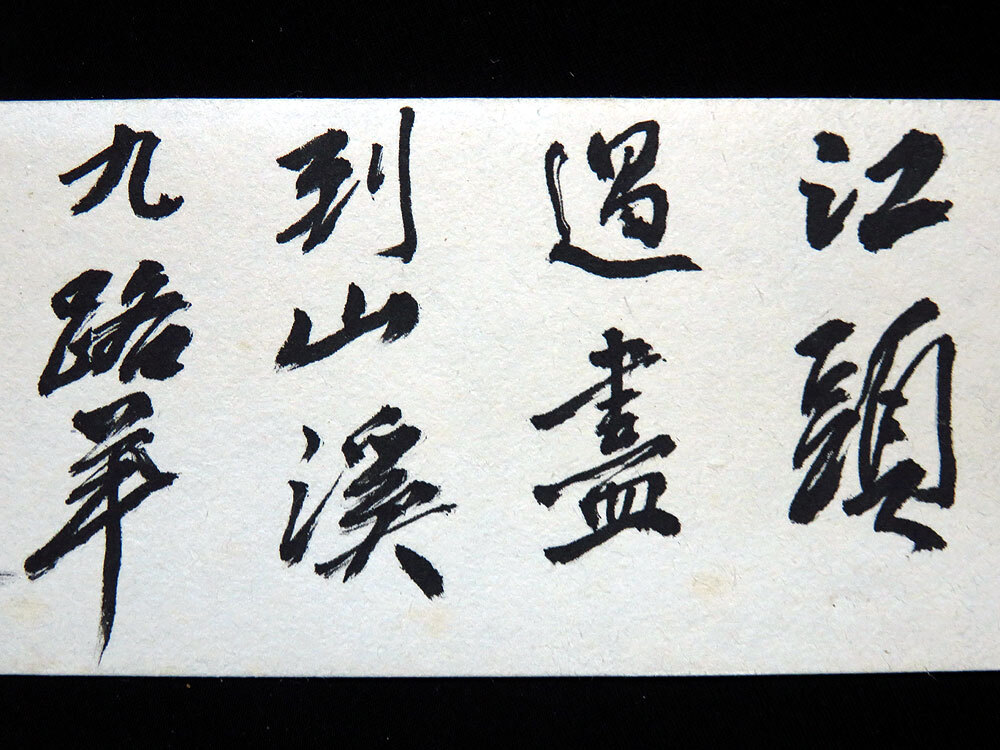 江頭
過盡
到山溪
九路羊